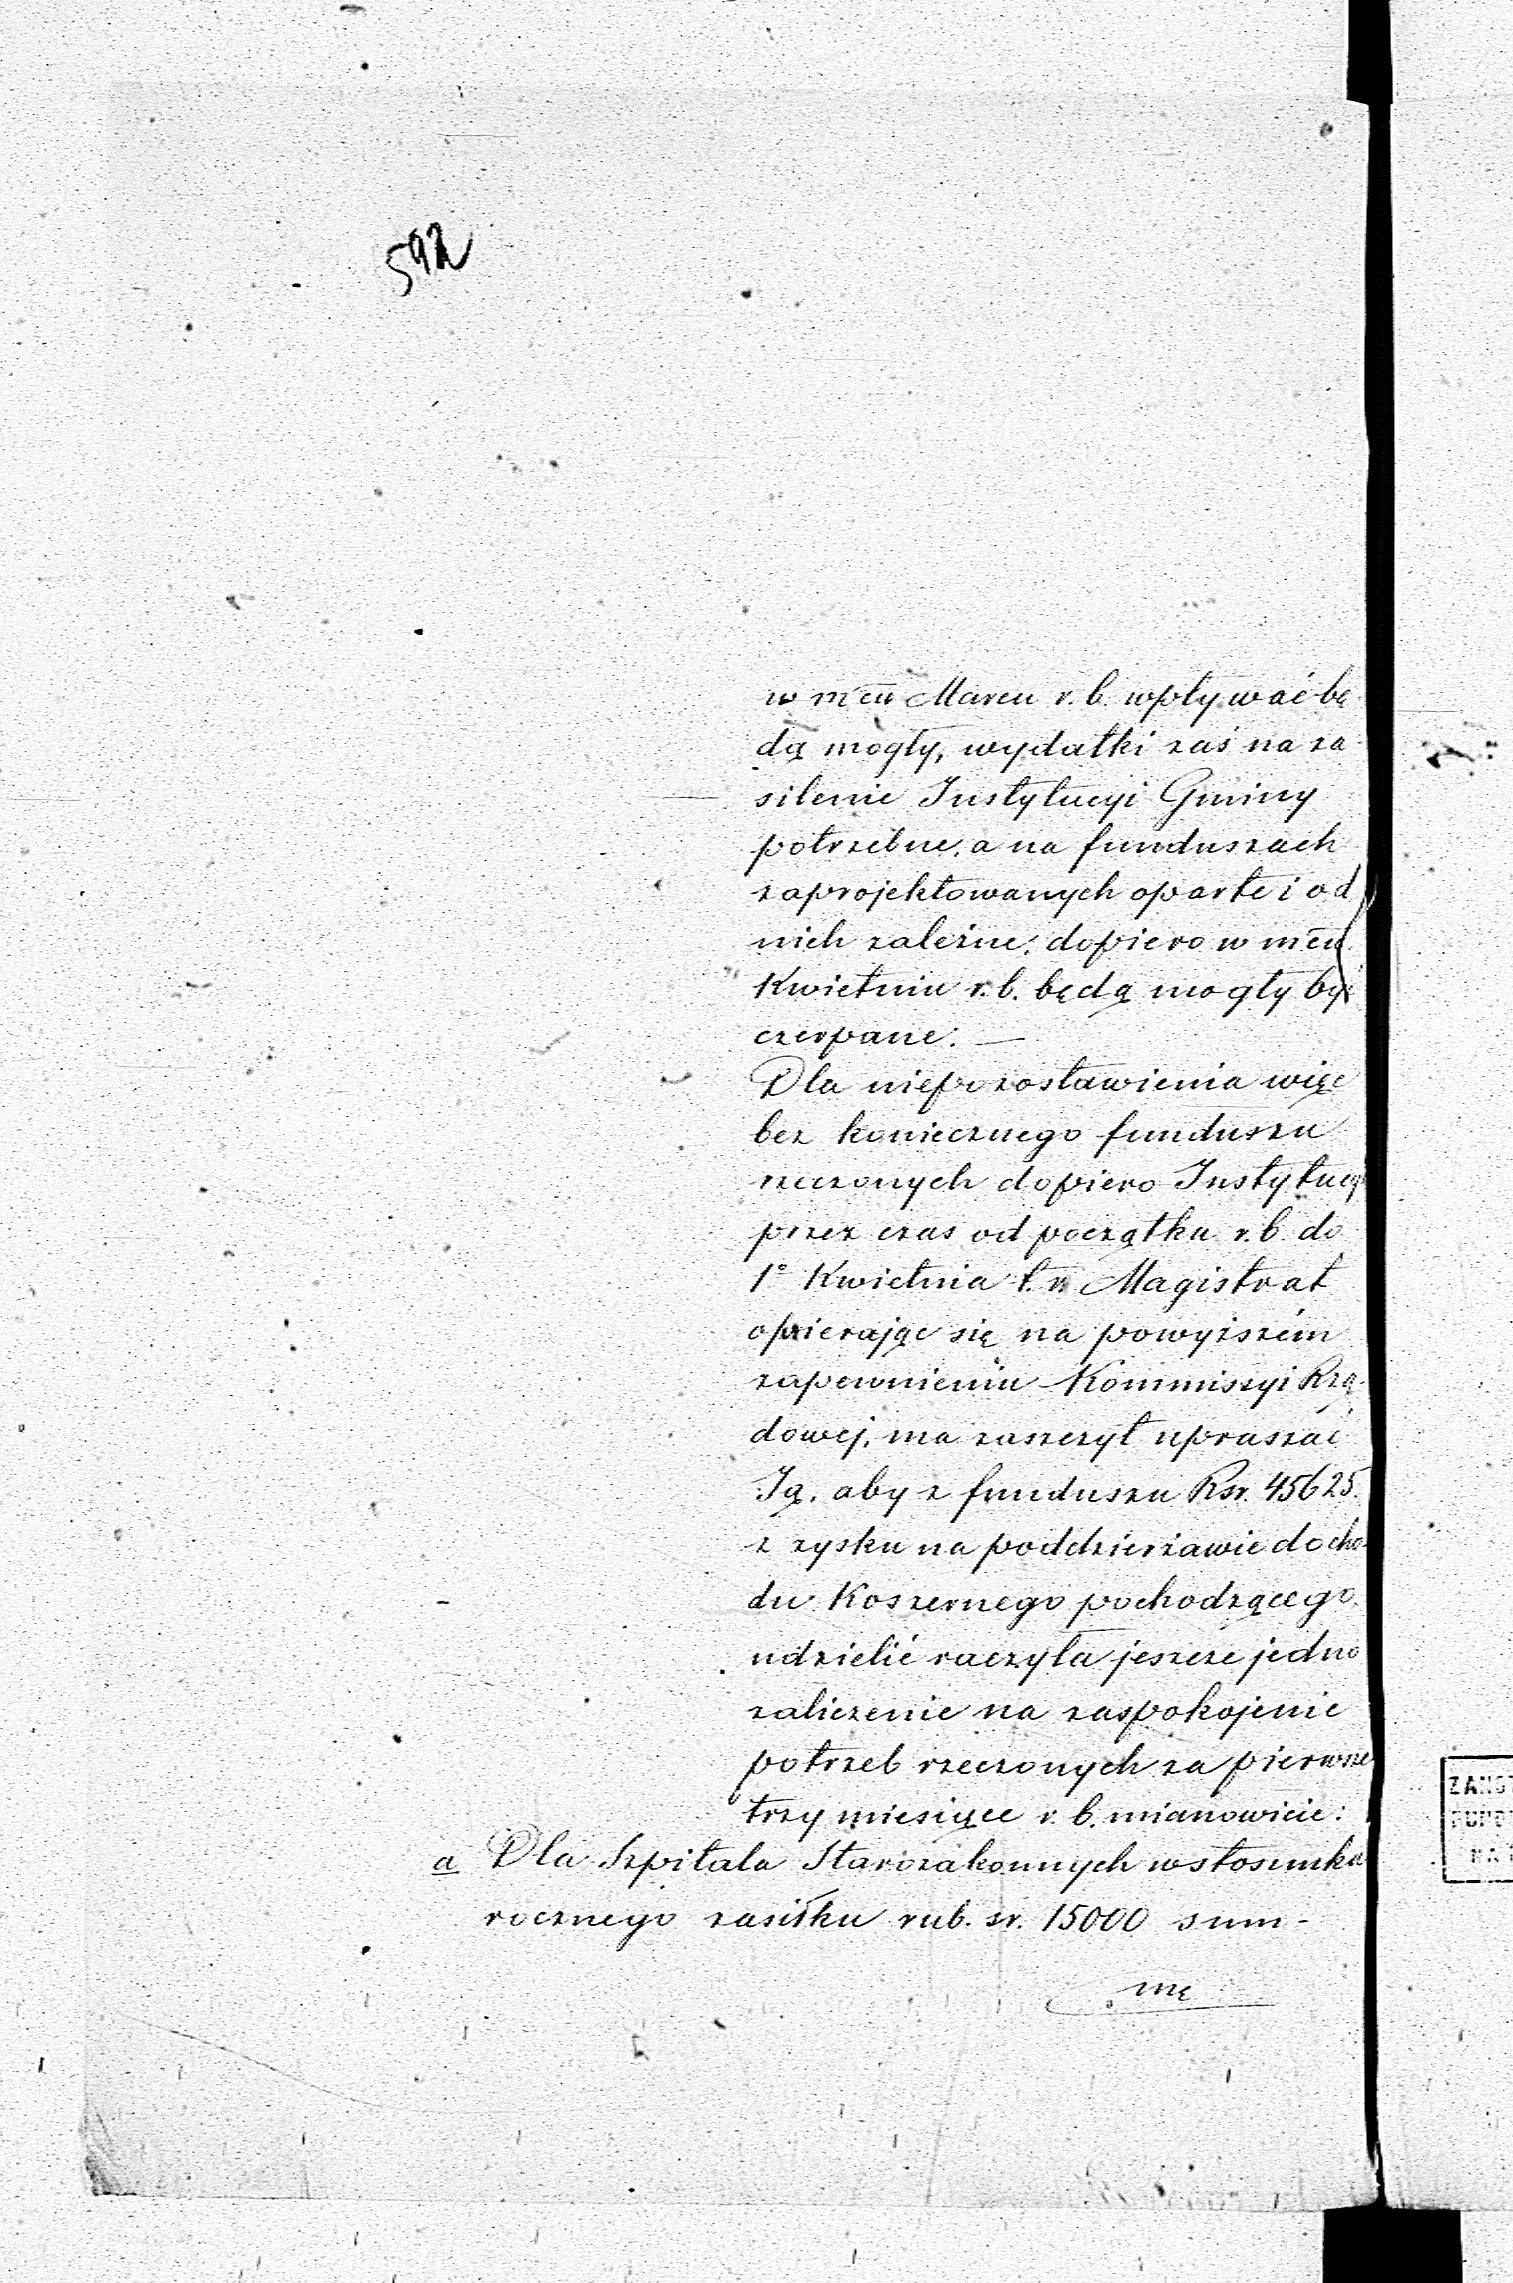 592
w mcu Marcu r. b. wpływać bę
dą mogły, wydatki zaś na za
silenie Instytucyi Gminy
potrzebne, a na funduszach
zaprojektowanych oparte i od
nich zależne, dopiero w mcu
Kwietniu r. b. będą mogły być
czerpane. —
Dla niepozostawienia więc
bez koniecznego funduszu
rzeczonych dopiero Instytucyi
przez czas od początku r. b. do
1º Kwietnia t. r. Magistrat
opierając się na powyższém
zapewnieniu Kommissyi Rzą-
dowej, ma zaszczyt upraszać
Ją, aby z funduszu Rsr. 45625.
z zysku na poddzierżawie docho-
du Koszernego pochodzącego
udzielić raczyła jeszcze jedno
zaliczenie na zaspokojenie
potrzeb rzeczonych za pierwsze
trzy miesiące r. b. mianowicie:
a Dla Szpitala Starozakonnych w stosunku
rocznego zasiłku rub. sr. 15000 sum-
mę